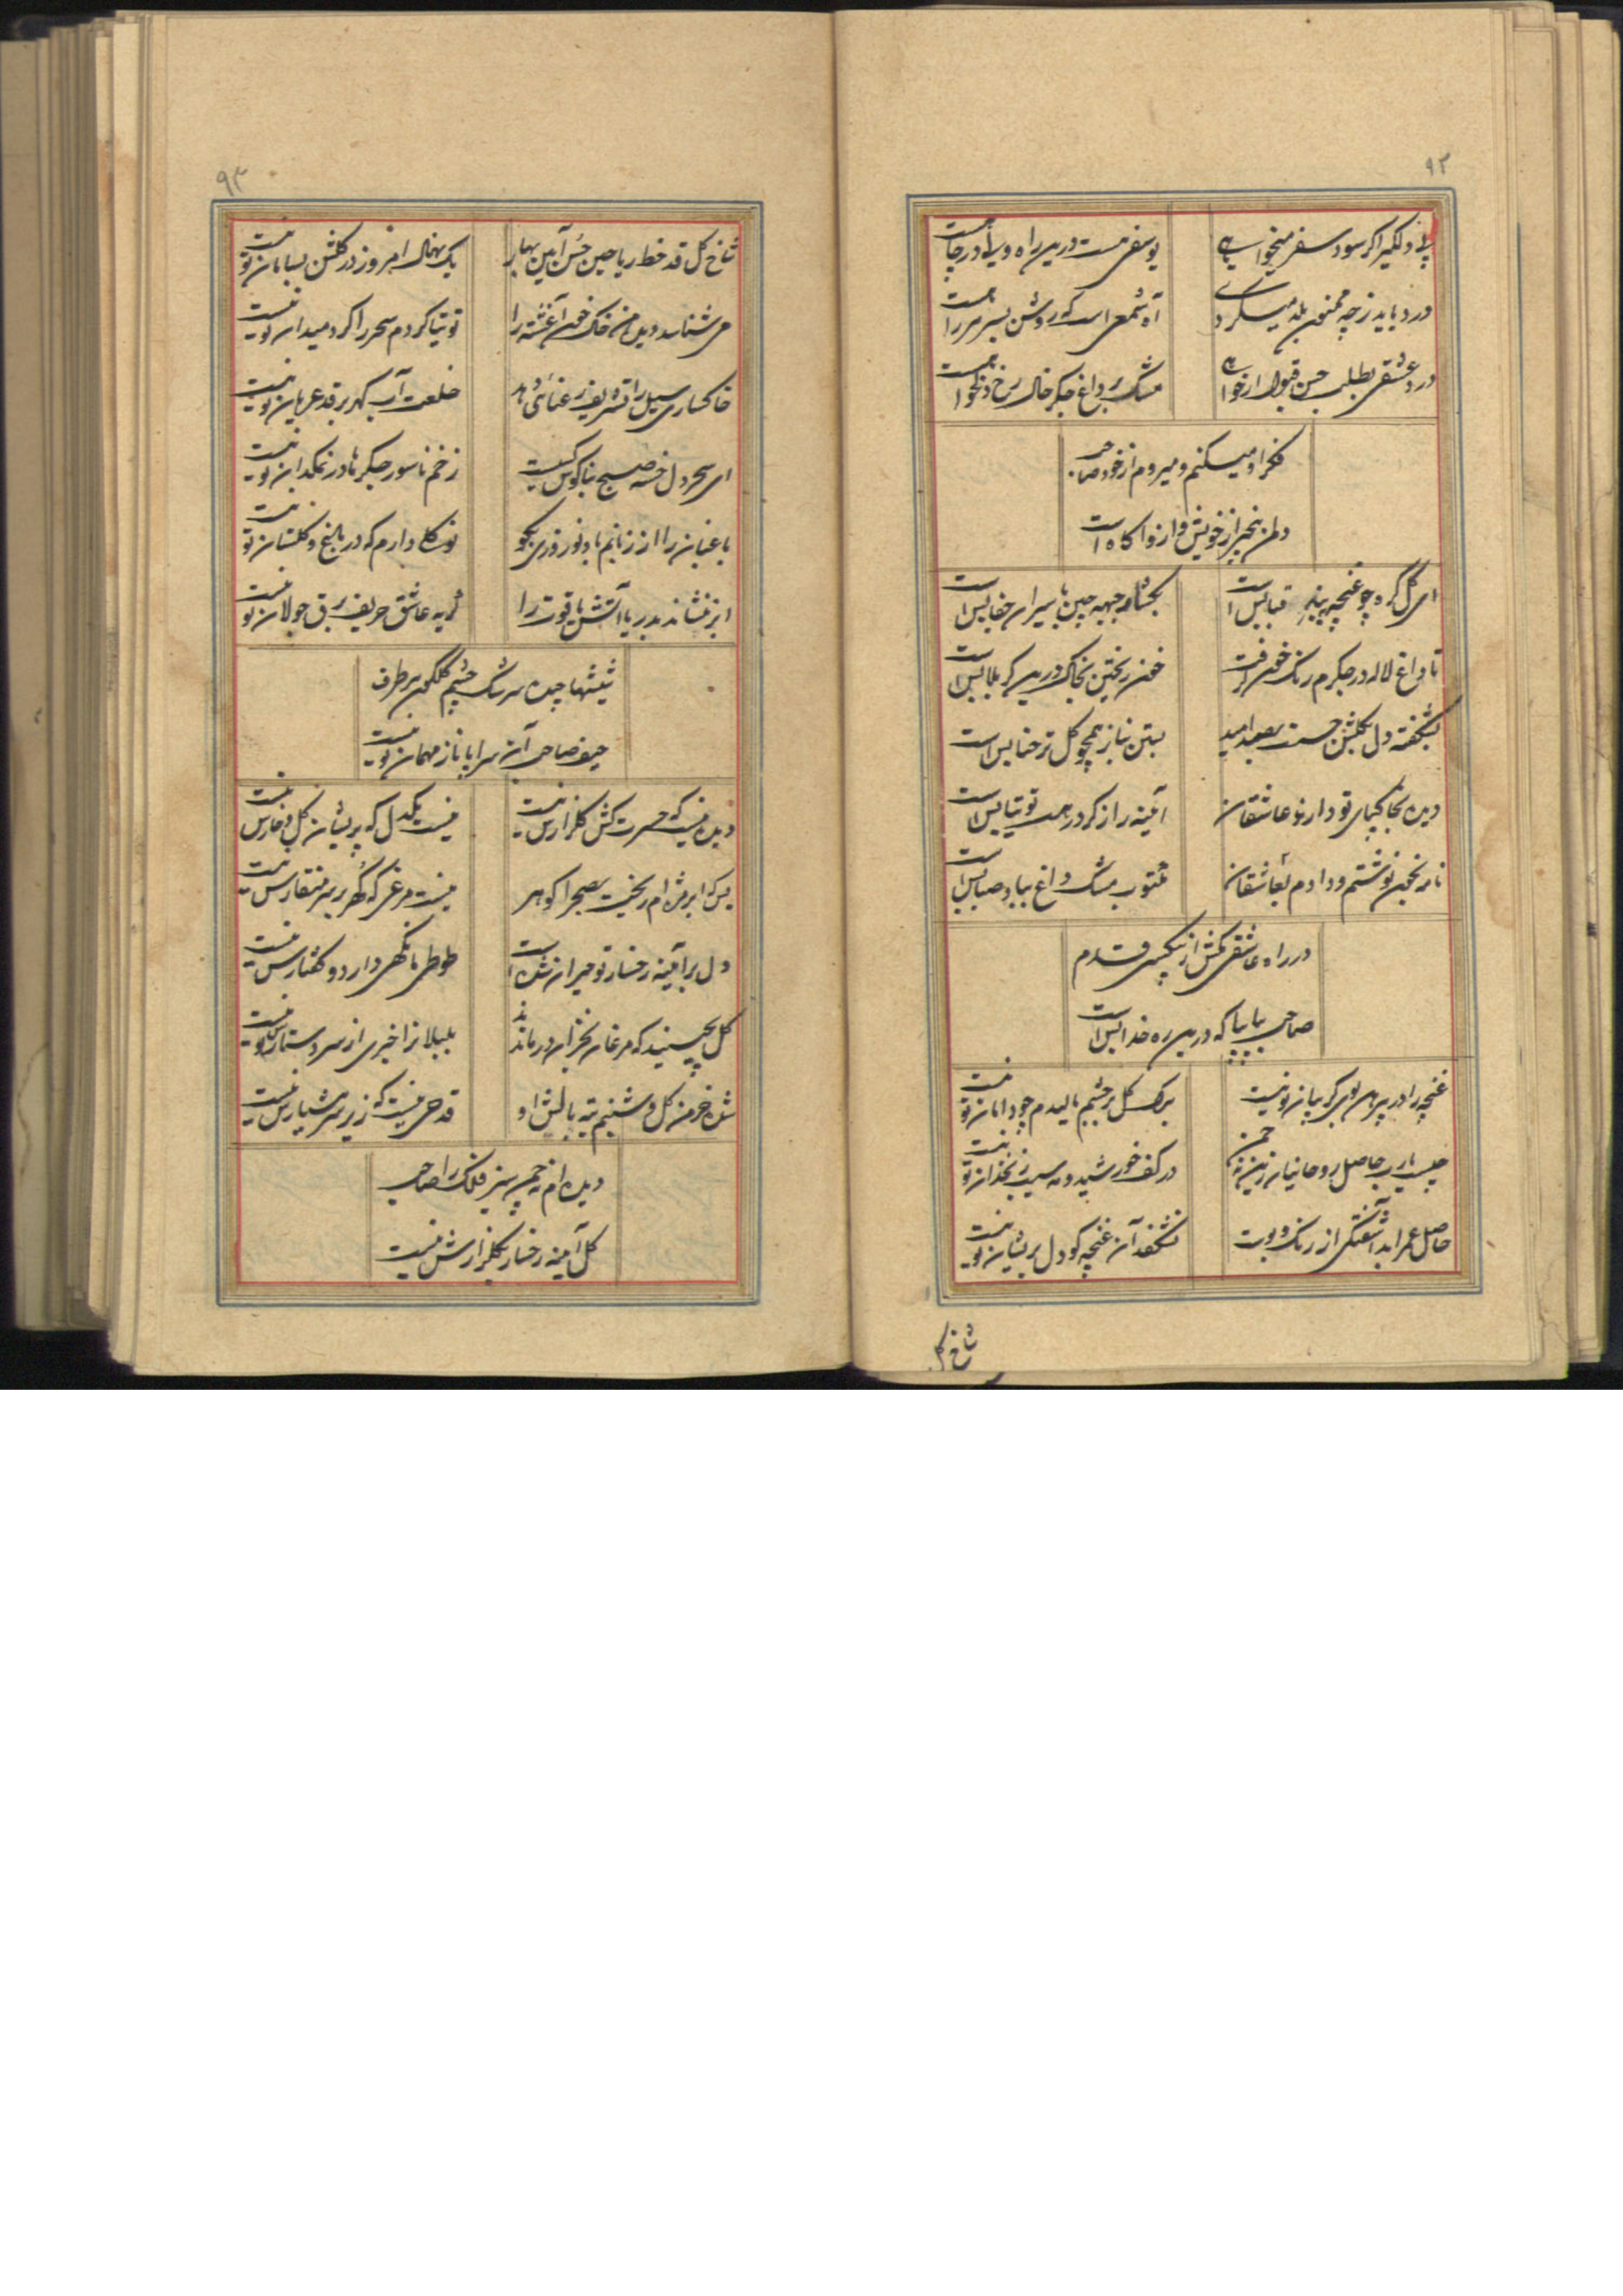 ۹۲
پی دلگیر اگر سود سفر میخواهی
یوسفی هست درین راه و ولی در چاهست
درد باید ز چه مجنون بلد میگردی
آه شمعی است که روشن بسر هر راهست
درد عشقی بطلب حسن قبول ار خواهی
مشک داغ جگر خال رخ دلخواهست
فکر او میکنم و میروم از خود صاحب
دل من بیخبر از خویش و ازو آگاه است
ای گل گره چو غنچه قبا بس است
بگشا ز جبهه چین ما سیرای جفا بس است
تا داغ لاله در جگرم رنگ خون گرفت
خون ریختن بخاک درین کربلا بس است
بشگفته دل بگلشن حسنت بصد امید
بستن نیاز همچو گل تر حنا بس است
دیده بخاکپای تو دارند عاشقان
آئینه را ز گرد رهت توتیا بس است
نامه بخون نوشتم و دادم بعاشقان
مکتوب مشک داغ بباد صبا بس است
در راه عاشقی مکش از بیکسی قدم
صاحب بیا بیا که درین ره خدا بس است
غنچه را در پیرهن بوی گریبان تو نیست
برگ گل بر چشم مالیدم چو دامان تو نیست
چیست یارب حاصل روحانیان زین نه چمن
در کف خورشید و مه سیب زنخدان تو نیست
حاصل عمر ابد آشفتگی از رنگ و بوست
نشکفد آن غنچه کو دل پریشان تو نیست
شاخ گل
۹۳
شاخ گل قد خط ریاحین حسن آیین بهار
یک نهال امروز در گلشن بسامان تو نیست
می شناسد دیده من خاک خون آغشته را
توتیا کردم سحر را گرد میدان تو نیست
خاکساری سیل را تشریف رعنائی دهد
خلعت آب گهر بر قد عریان تو نیست
ای سحر دل خسته صبح بناگوش کیست
زخم ناسور جگرها در نمکدان تو نیست
باغبان را از زبانم باد نوروزی بگو
نوگلی دارم که در باغ و گلستان تو نیست
ابر ننشاند بدریا آتش یاقوت را
گریه عاشق حریف برق جولان تو نیست
شیشها چیده سرشک چشم گلگون هر طرف
حیف صاحب آن سراپا ناز مهمان تو نیست
دیده نیست که حسرت کش گلزارش نیست
نیست یکدل که پریشان گل و خارش نیست
بس که ابر مژه ام ریخت بصحرا گوهر
نیست مرغی که گهر بر سر منقارش نیست
دل بر آیینه رخسار تو حیران شده است
طوطی ما نگهی دارد و گفتارش نیست
گل بچینید که مرغان بخزان درماندند
بلبلان را خبری از سر و دستارش نیست
شده خرمن گل و شبنم ته بالش او
قدحی نیست که زیر سر هشیارش نیست
دیده ام نه چمن سبز فلک را صاحب
گل آیینه رخسار بگلزارش نیست